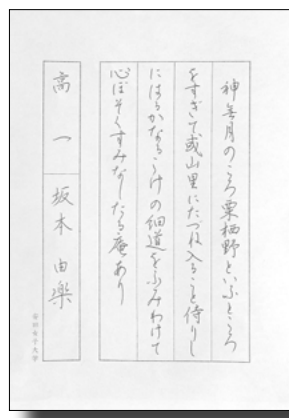 神無月のころ栗栖野といふところ
をすぎて或山里にたづね入ること侍りし
にはるかなるこけの細道をふみわけて
心ぼそくすみなしたる庵あり
高一
坂本由樂
安田女子大学